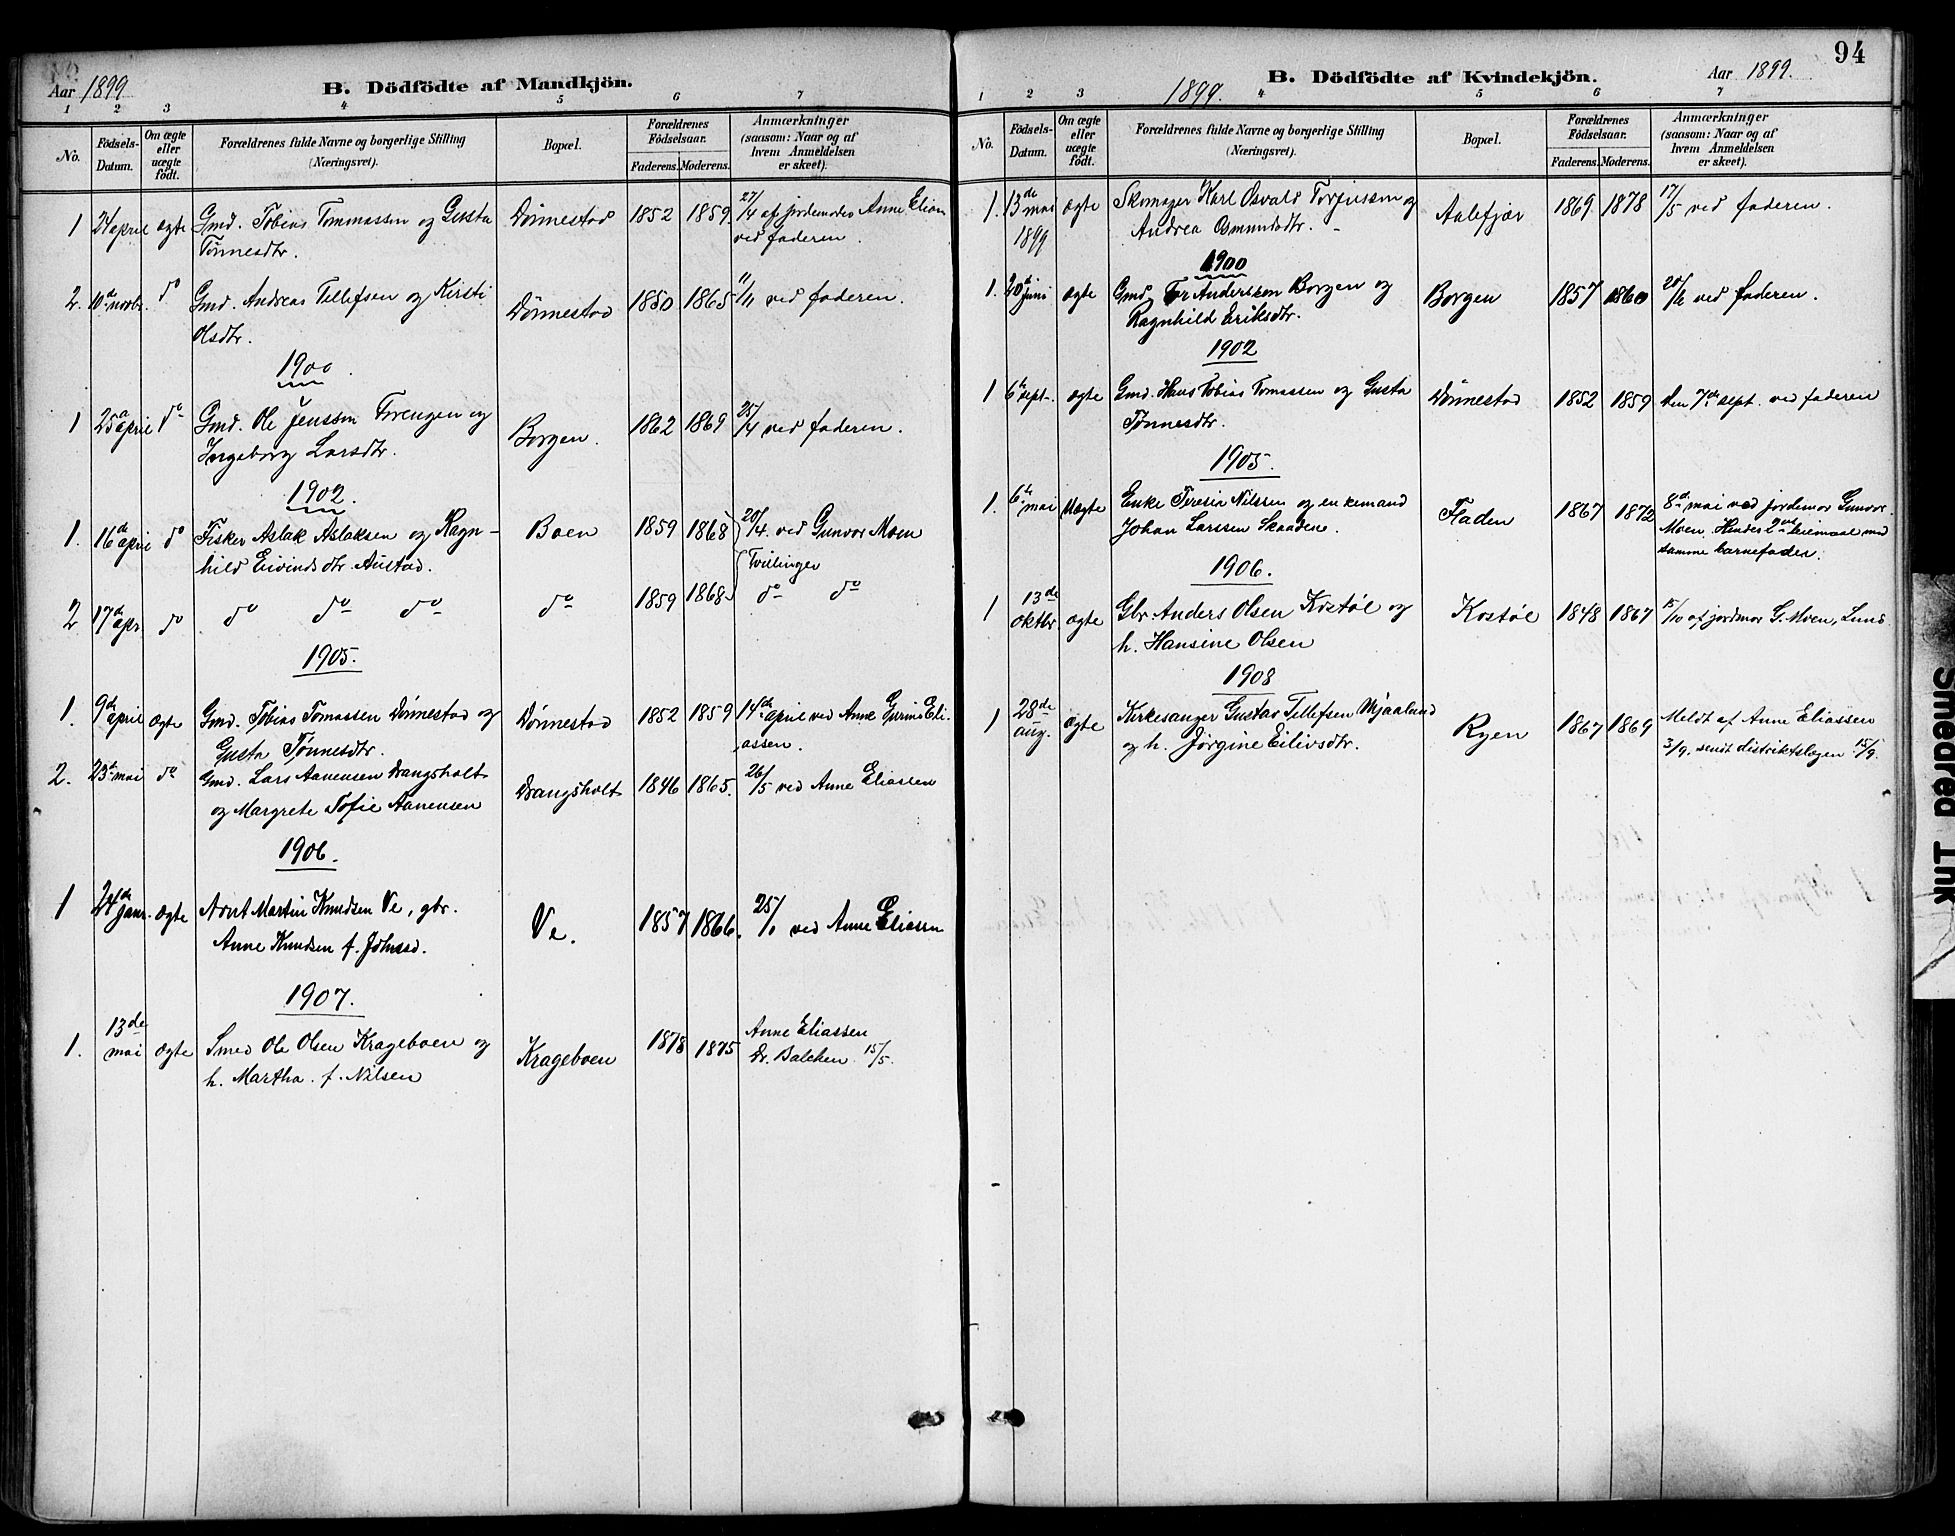 Aar 1899
B. Dödfödte af Mandkjön.
1 2 3 4 5 6 7
No.
Födsels-Datum.
Om ægte eller uægte födt.
Forældrenes fulde Navne og borgerlige Stilling (Næringsvei).
Bopæl.
Forældrenes Födselsaar.
Faderens. Moderens.
Anmærkninger (saasom: Naar og af hvem Anmeldelsen er skeet).
1 24 april ægte Gmd. Tobias Tommassen og Gusta Dönnestad 1852 1859 27/4 af jordemoder Anne Elias
Tönnesdtr. ved faderen.
2. 10de novbr. do Gmd. Andreas Tellefsen og Kirsti Dönnestad 1850 1865 11/11 ved faderen.
Olsdtr.
1900
1 25d april do Gmd. Ole Jenssen Forengen og Borgen. 1862 1869 25/4 ved faderen.
Ingeborg Larsdtr.
1902.
1. 16de april do Fisker Aslak Aslaksen og Ragn- Boen 1859 1868 20/4. ved Gunvor Moen
hild Eivindsdtr. Austad. Tvillinger
2 17de apr. do do do do do 1859 1868 do do
1905.
1. 9de april ægte Gmd. Tobias Tomassen Dönnestad og Dönnestad 1852 1859 14de april ved Anne Gurine Eli-
Gusta Tönnesdtr. assen.
2. 23d mai do Gmd. Lars Aanensen Drangsholt Drangsholt 1846 1865. 26/5 ved Anne Eliassen
og Margrete Tofie Aanensen
1906.
1 24de janr. ægte Arnt Martin Knudsen Ve, gbr. Ve. 1857 1866. 25/1 ved Anne Eliassen
Anne Knudsen f.
1907.
1. 13de mai ægte Smed Ole Olsen Krageboen og Krageboen 1878 1875 Anne Eliassen
h. Martha. f. Nilsen Dr. Balchen 15/5.
94
1899. B. Dödfödte af Kvindekjön. Aar 1899.
1 2 3 4 5 6 7
No.
Födsels-Datum.
Om ægte eller uægte födt.
Forældrenes fulde Navne og borgerlige Stilling (Næringsvei).
Bopæl.
Forældrenes Födselsaar.
Faderens. Moderens.
Anmærkninger (saasom: Naar og af hvem Anmeldelsen er skeet).
1. 13de mai 1899 ægte Skomager Karl Osvald Torjussen og Aalefjær 1869 1878 17/5 ved faderen.
Andrea Osmundsdtr.
1900
1. 20d juni ægte Gmd. Tor Andersson Borgen og Borgen 1857 1860 20/6 ved faderen.
Ragnhild Eriksdtr.
1902
1 6te sept. ægte Gmd. Hans Tobias Tomassen og Gusta Dönnestad 1852 1859 den 7de sept. ved faderen
Tönnesdtr.
1905.
1. 6te mai uægte Enke Teresia Nilssen og enkemand Fladen 1867 1872 8de mai ved jordemor Gunvor
Johan Larssen Skaaden. Moen. Hendes 2det leiermaal med
samme barnefader.
1906.
1 13de oktbr. ægte Gbr. Anders Olsen Kostöl og Kostöl 1848 1867 15/10 af jordmor G. Moen, Lund
h. Hansine Olsen
1908
1 28de aug. ægte Kirkesanger Gustav Tellefsen Mjaaland Ryen 1867 1869 Meldt af Anne Eliassen
og h. Jörgine Eilivsdtr. 3/9, sendt distriktslægen 15/9.
Smeared Ink